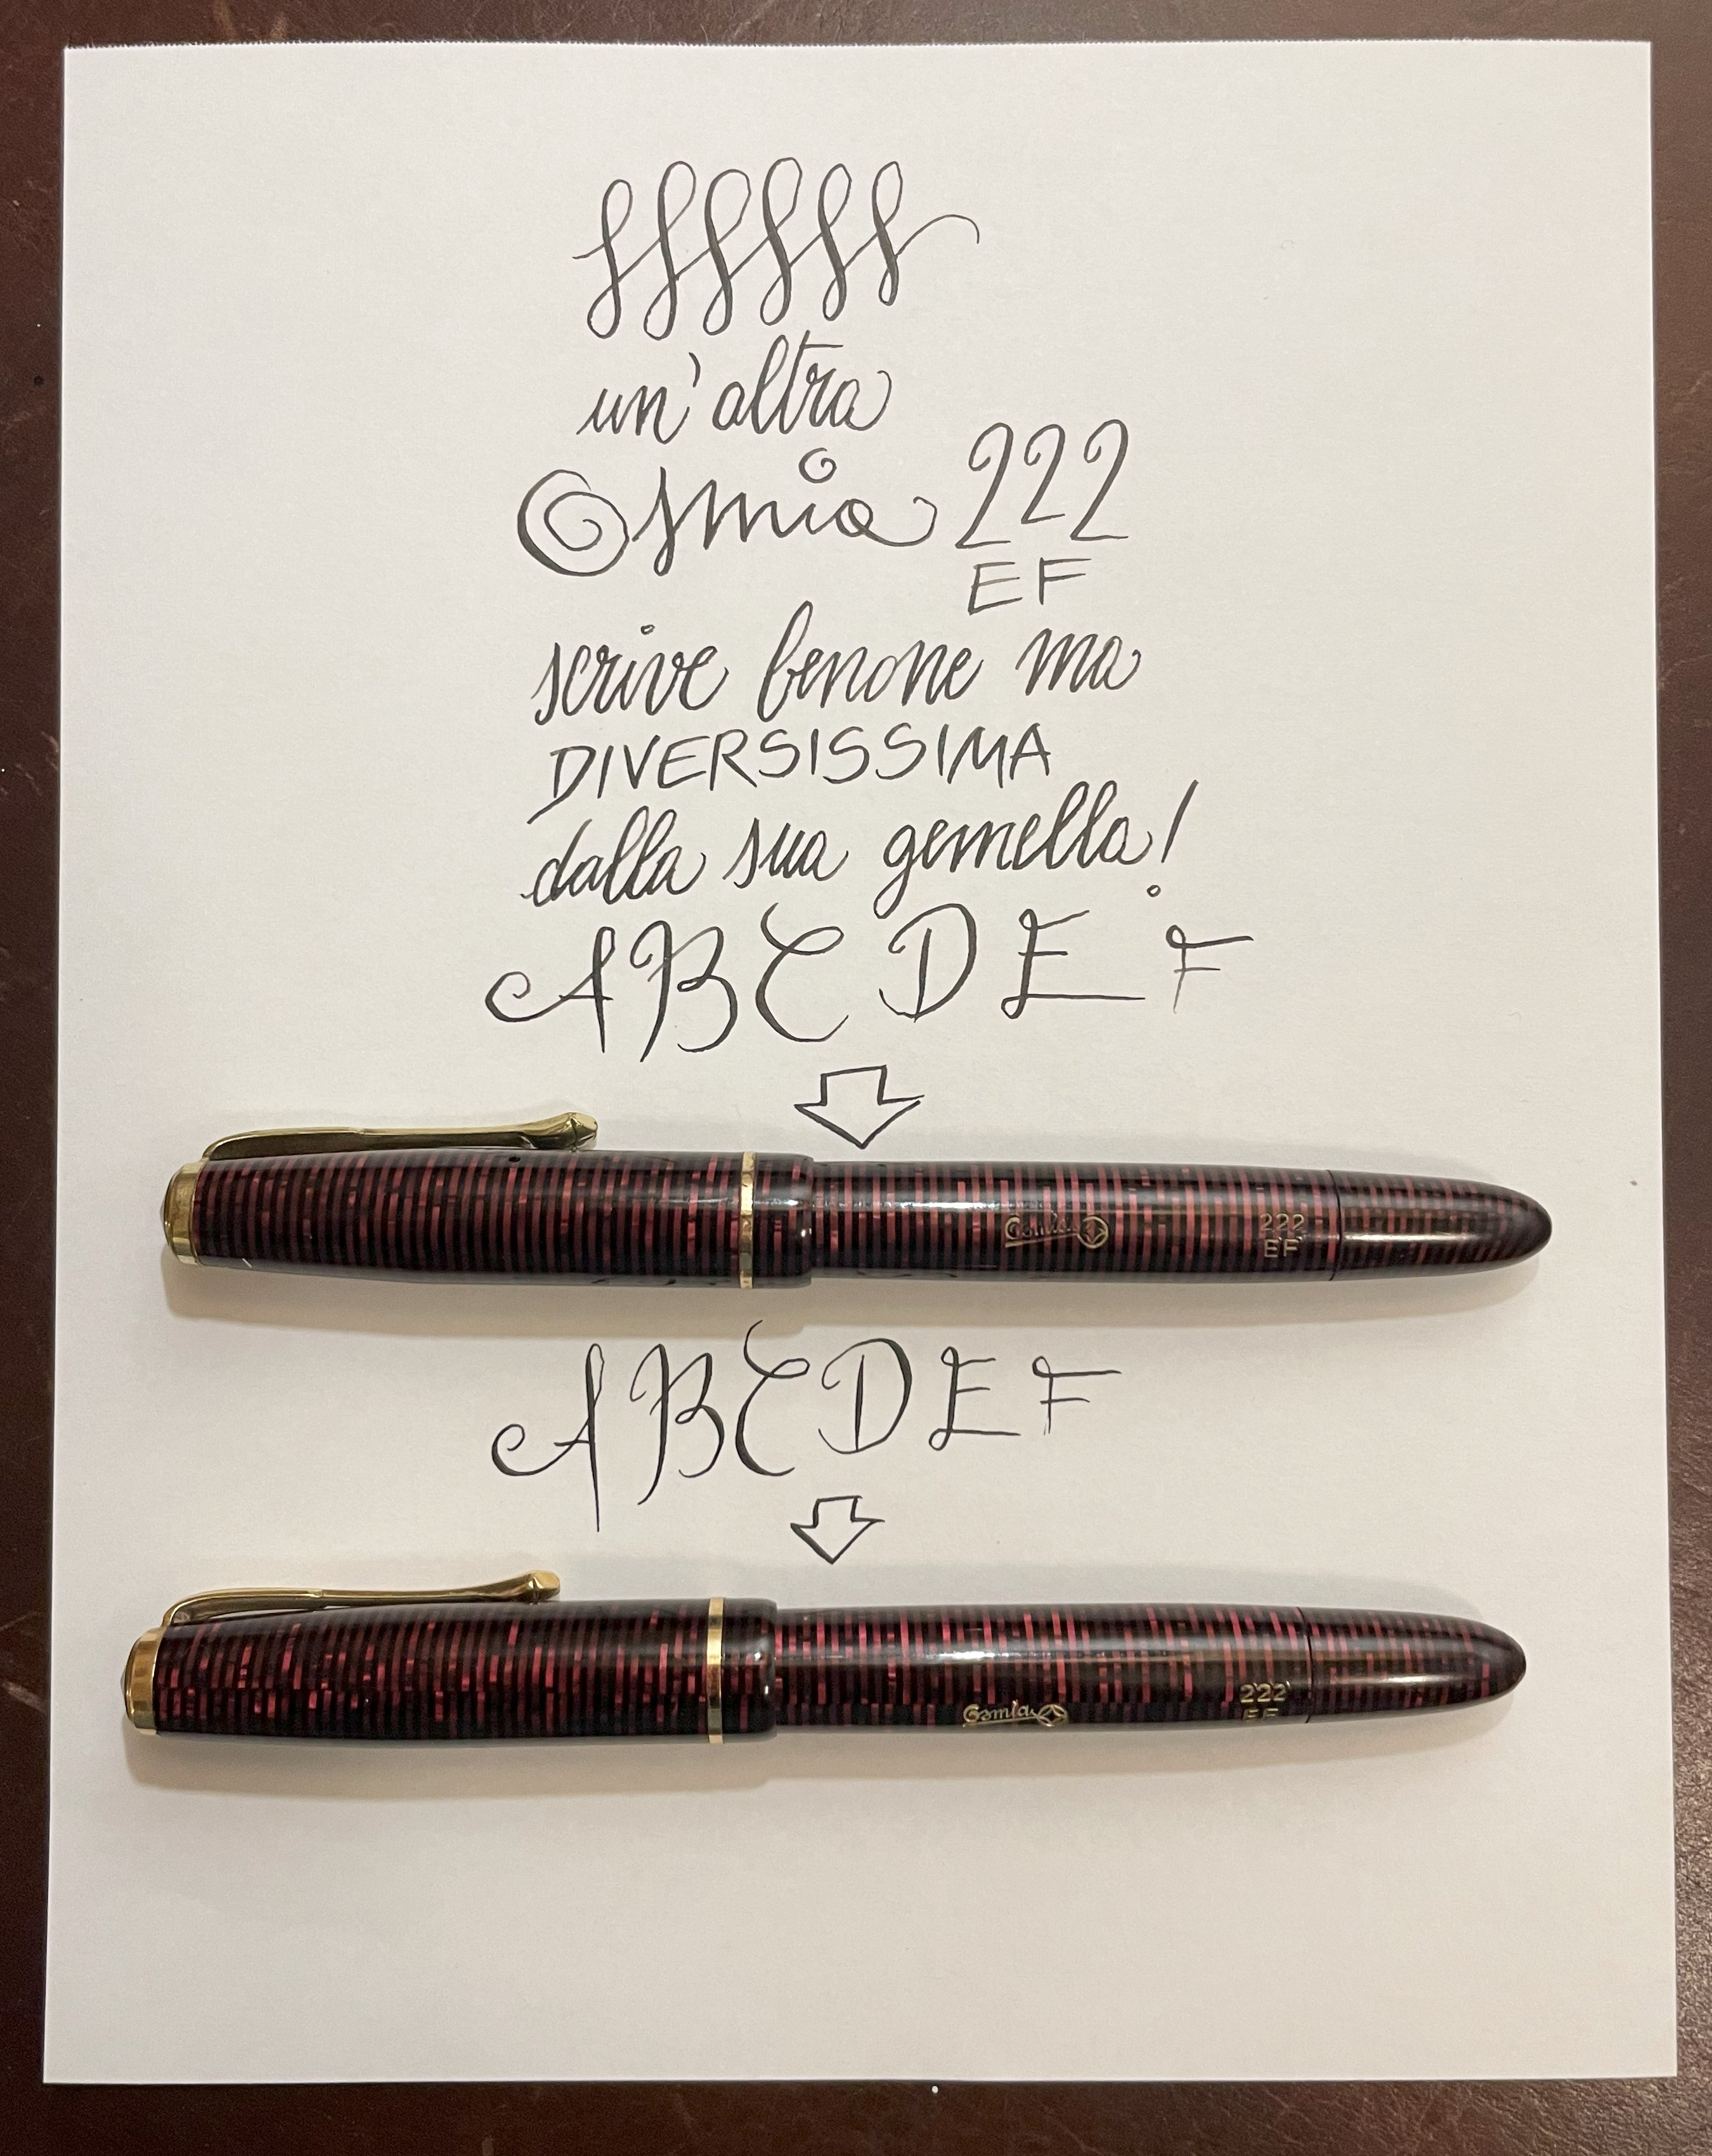 un'altra
Osmia 222
EF
scrive benone ma
DIVERSISSIMA
dalla sua gemella!
A B C D E F
Osmia 222
EF
A B C D E F
Osmia 222
EF